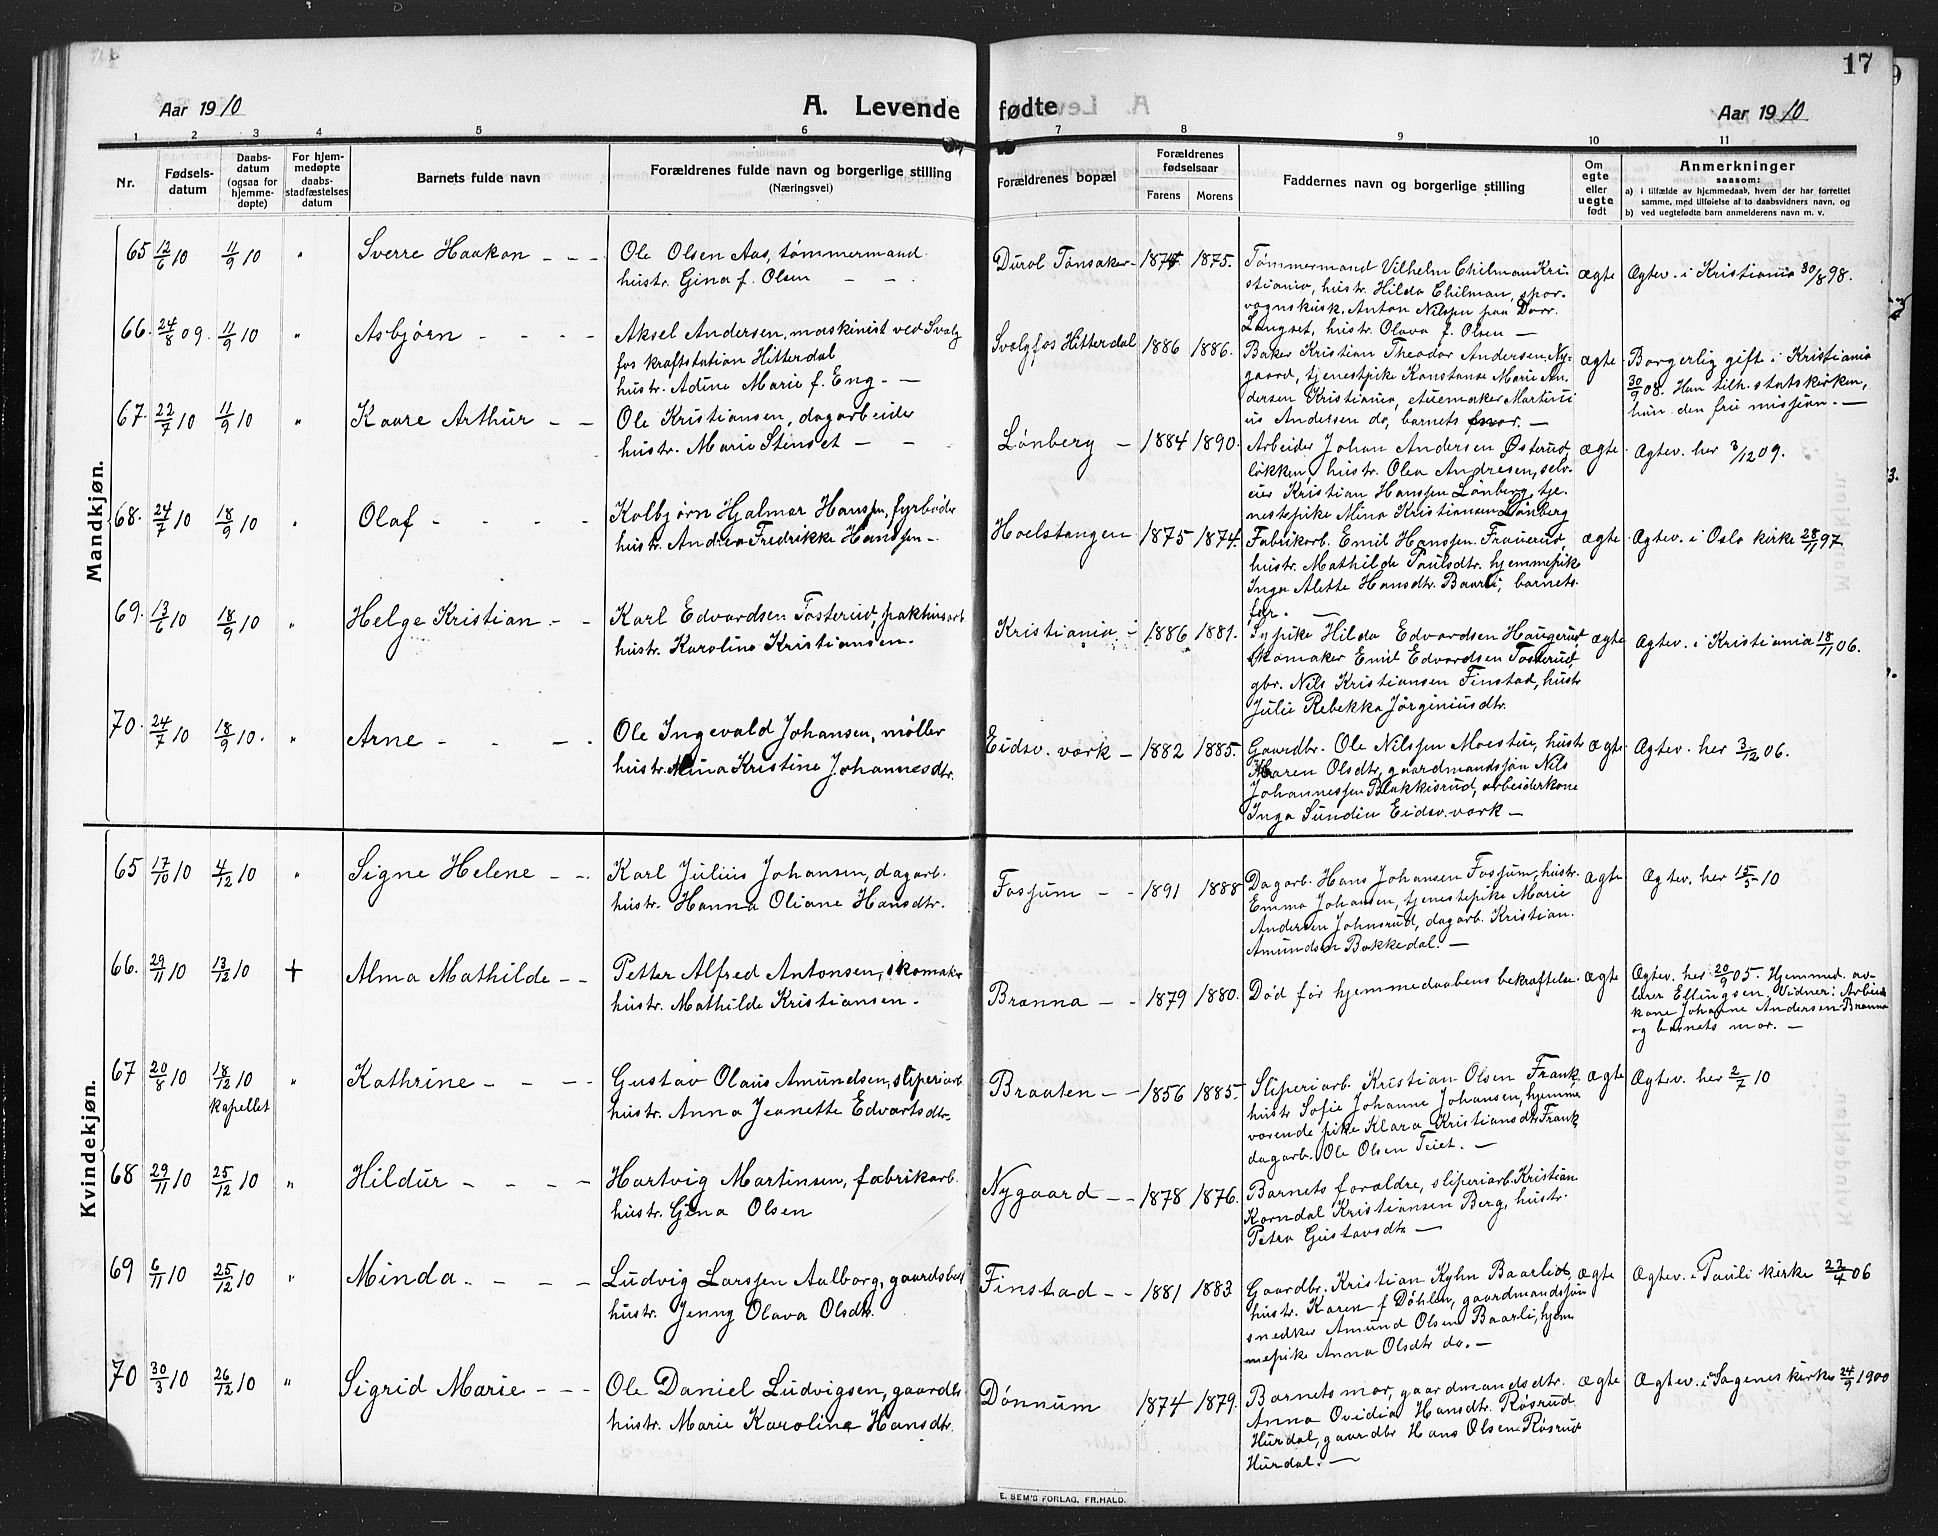 17
Aar 1910
A. Levende fødte
Aar 1910
1 2 3 4 5 6 7 8 9 10 11
Nr.
Fødsels-
datum
Daabs-
datum
(ogsaa for
hjemme-
døpte)
For hjem-
medøpte
daabs-
stadfæstelses
datum
Barnets fulde navn
Forældrenes fulde navn og borgerlige stilling
(Næringsvei)
Forældrenes bopæl
Forældrenes
fødselsaar
Farens
Morens
Faddernes navn og borgerlige stilling
Om
egte
eller
uegte
født
Anmerkninger
saasom:
a) i tilfælde av hjemmedaab, hvem der har forrettet
samme, med tilføielse af to daabsvidners navn, og
b) ved uegtefødte barn anmelderens navn m. v.
Mandkjøn.
65 12/6 10 11/9 10 " Sverre Haakon - - -
Ole Olsen Aas, tømmermand
hustr. Gina f. Olsen - -
Durol Tønsaker - 1874 1875.
Tømmermand Vilhelm Chilman Kri
stiania, hustr. Hilda Chilman, spor-
vognskusk. Anton Nilssen paa Dorr.
Langset, hustr. Olava f. Olsen -
ægte
Ægtev. i Kristiania 30/8 98.
66. 24/8 09. 11/9 10 " Asbjørn - - - -
Aksel Andersen, maskinist ved Svælg
fos kraftstation Hitterdal
hustr. Adine Marie f. Eng. -
Svælgfos Hitterdal 1886 1886.
Baker Kristian Theodor Andersen, Ny-
gaard, tjenestpike Konstanse Marie An
dersen Kristiania, Martini
us Andersen do, barnets mor. -
ægte
Borgerlig gift i Kristiania
30/9 08. Han tilh. statskirken,
hun den fri missjon. -
67. 22/7 10 11/9 10 " Kaare Arthur - -
Ole Kristiansen, dagarbeider
hustr. Marie Stenset - -
Lønberg - 1884 1890.
Arbeider Johan Andersen Østerud-
løkken, hustr. Olea Andresen, selv-
eier Kristian Hanssen Lønberg, tje-
nestepike Mina Kristiansen Lønberg
ægte
Ægtev. her 3/12 09.
68. 24/7 10 18/9 10 " Olaf - - - -
Kolbjørn Hjalmar Hanssen, fyrbøder
hustr. Andrea Fredrikke Hanssen -
Hoelstangen 1875 1874.
Fabrikarb. Emil Hanssen Frauerud,
hustr. Mathilde Paulsdtr. hjemmepike
Inga Alette Hansdtr. Baarli, barnets
far. -
ægte
Ægtev. i Oslo kirke 28/11 97
69. 13/6 10 18/9 10 " Helge Kristian - -
Karl Edvardsen Tosterud, pakhusarb
hustr. Karoline Kristiansen -
Kristiania - 1886 1881.
Sypike Hilda Edvardsen Haugerud
skomaker Emil Edvardsen Tosterud,
gbr. Nils Kristiansen Finstad, hustr
Julie Rebekka Jørginiusdtr.
ægte
Ægtev. i Kristiania 18/11 06.
70. 24/7 10 18/9 10. " Arne - - - -
Ole Ingevald Johansen, møller
hustr. Mina Kristine Johannesdtr.
Eidsv. værk - 1882 1885.
Gaardbr. Ole Nilssen Moestue, hustr
Maren Olsdtr, gaardmandssøn Nils
Johannessen Bakkisrud, arbeiderkone
Inga Sundin Eidsv. værk -
ægte
Ægtev. her 3/12 06.
Kvindekjøn.
65 17/10 10 4/12 10 " Signe Helene - -
Karl Julius Johansen, dagarb.
hustr. Hanna Oliane Hansdtr.
Fossum - - 1891 1888
Dagarb. Hans Johansen Fossum, hustr.
Emma Johansen, tjenestepike Marie
Andersen Johnsrud, dagarb. Kristian
Amundsen Bakkedal. -
ægte
Ægtev. her 15/5 10
66. 29/11 10 13/12 10 + Alma Mathilde - -
Petter Alfred Antonsen, skomaker
hustr. Mathilde Kristiansen -
Brænna - - 1879 1880.
Død før hjemmedaabens bekræftelse
ægte
Ægtev. her 20/9 05. Hjemmed. av
lærer Ellingsen. Vidner: Arbeid
kone Johanne Andersen Brænna
og barnets mor. -
67 20/8 10 18/12 10 " Kathrine - - -
kapellet
Gustav Olaus Amundsen, sliperiarb
hustr. Anna Jeanette Edvartsdtr
Braaten - - 1856 1885.
Sliperiarb. Kristian Olsen Frank,
hustr Sofie Johanne Johansen, hjemme
værende pike Klara Kristiansdtr Frank,
dagarb. Ole Olsen Teiet. -
ægte
Ægtev. her 2/7 10
68 29/11 10 25/12 10 " Hildur - - - -
Hartvig Martinsen, fabrikarb.
hustr. Gina Olsen
Nygaard - - 1878 1876.
Barnets foræeldre, sliperiarb. Kristian
Korndal Kristiansen Berg, hustr.
Petra Gustavsdtr -
69 6/11 10 25/12 10 " Minda - - -
Ludvig Larssen Aalborg, gaardsbest
hustr. Jenny Olava Olsdtr.
Finstad - - 1881 1883
Gaardbr. Kristian Kyhn Baarlid,
hustr. Karen f Døhlen, gaardmandssøn
snedker Amund Olsen Baarli, hjem
mepike Anna Olsdtr do. -
ægte
Ægtev. i Pauli kirke 22/4 06
70 30/3 10 26/12 10 " Sigrid Marie - - -
Ole Daniel Ludvigsen, gaardbr
hustr. Marie Karoline Hansdtr.
Dønnum 1874 1879.
Barnets mor, gaardmandsdtr.
Anna Ovidia Hansdtr. Røsrud
Hurdal, gaardbr Hans Olsen Røsrud
Hurdal. -
ægte
Ægtev. i Sagenes kirke 24/9 1900
E. SEM'S FORLAG, FR.HALD.